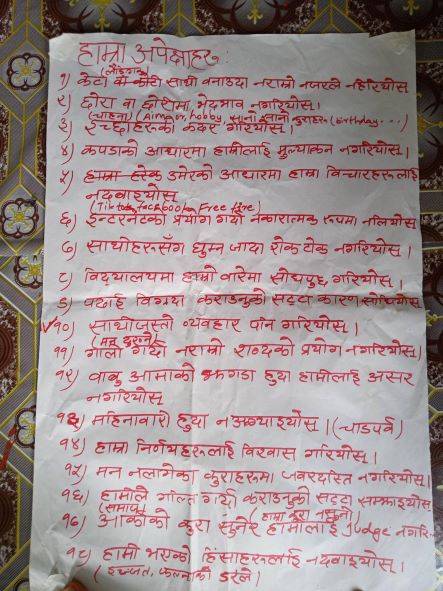 हाम्रा अपेक्षाहरु:
(लैङ्गिक)
१) केटा वा केटी साथी बनाउदा नराम्रो नजरले नहेरियोस्
२) छोरा वा छोरीमा भेदभाव नगरियोस्।
(चाहना) (Aim, hobby, साना साना कुराहरु (birthday...)
३) इच्छाहरुको कदर गरियोस्।
४) कपडाको आधारमा हामीलाई मुल्याकन नगरियोस्।
५) उमेरको आधारमा हाम्रा विचारहरुलाई
नदबाइयोस्
(Tiktok, facebook, Free fire)
६) इन्टरनेटको प्रयोग गर्दा नकारात्मक रुपमा नलियोस्
७) साथीहरुसँग घुम्न जादा रोक टोक नगरियोस्।
८) विद्यालयमा हाम्रो बारेमा सोधपुछ गरियोस्।
९) पढाई बिग्रदा कराउनुको सट्टा कारण सोधियोस्
१०) साथीजस्तो व्यवहार पनि गरियोस्।
११) गाली गर्दा नराम्रो शब्दको प्रयोग नगरियोस्।
१२) बाबु आमाको झगडा हुदा हामीलाई असर
नगरियोस्
१३) महिनावारी हुदा नअप्ठ्याइयोस्। (चाडपर्व)
१४) हाम्रा निर्णयहरुलाई विश्वास गरियोस्।
१५) मन नलागेका कुराहरुमा जबरजस्ति नगरियोस्।
१६) हामीले गल्ति गर्दा कराउनुको सट्टा सम्झाइयोस्
(समाज) (हाम्रा कुरा नसुनी)
१७) अर्काको कुरा सुनेर हामीलाई Judge नगरि
१८) हामी भएको हिंसाहरुलाई नदबाइयोस्।
(इज्जत, डरले)